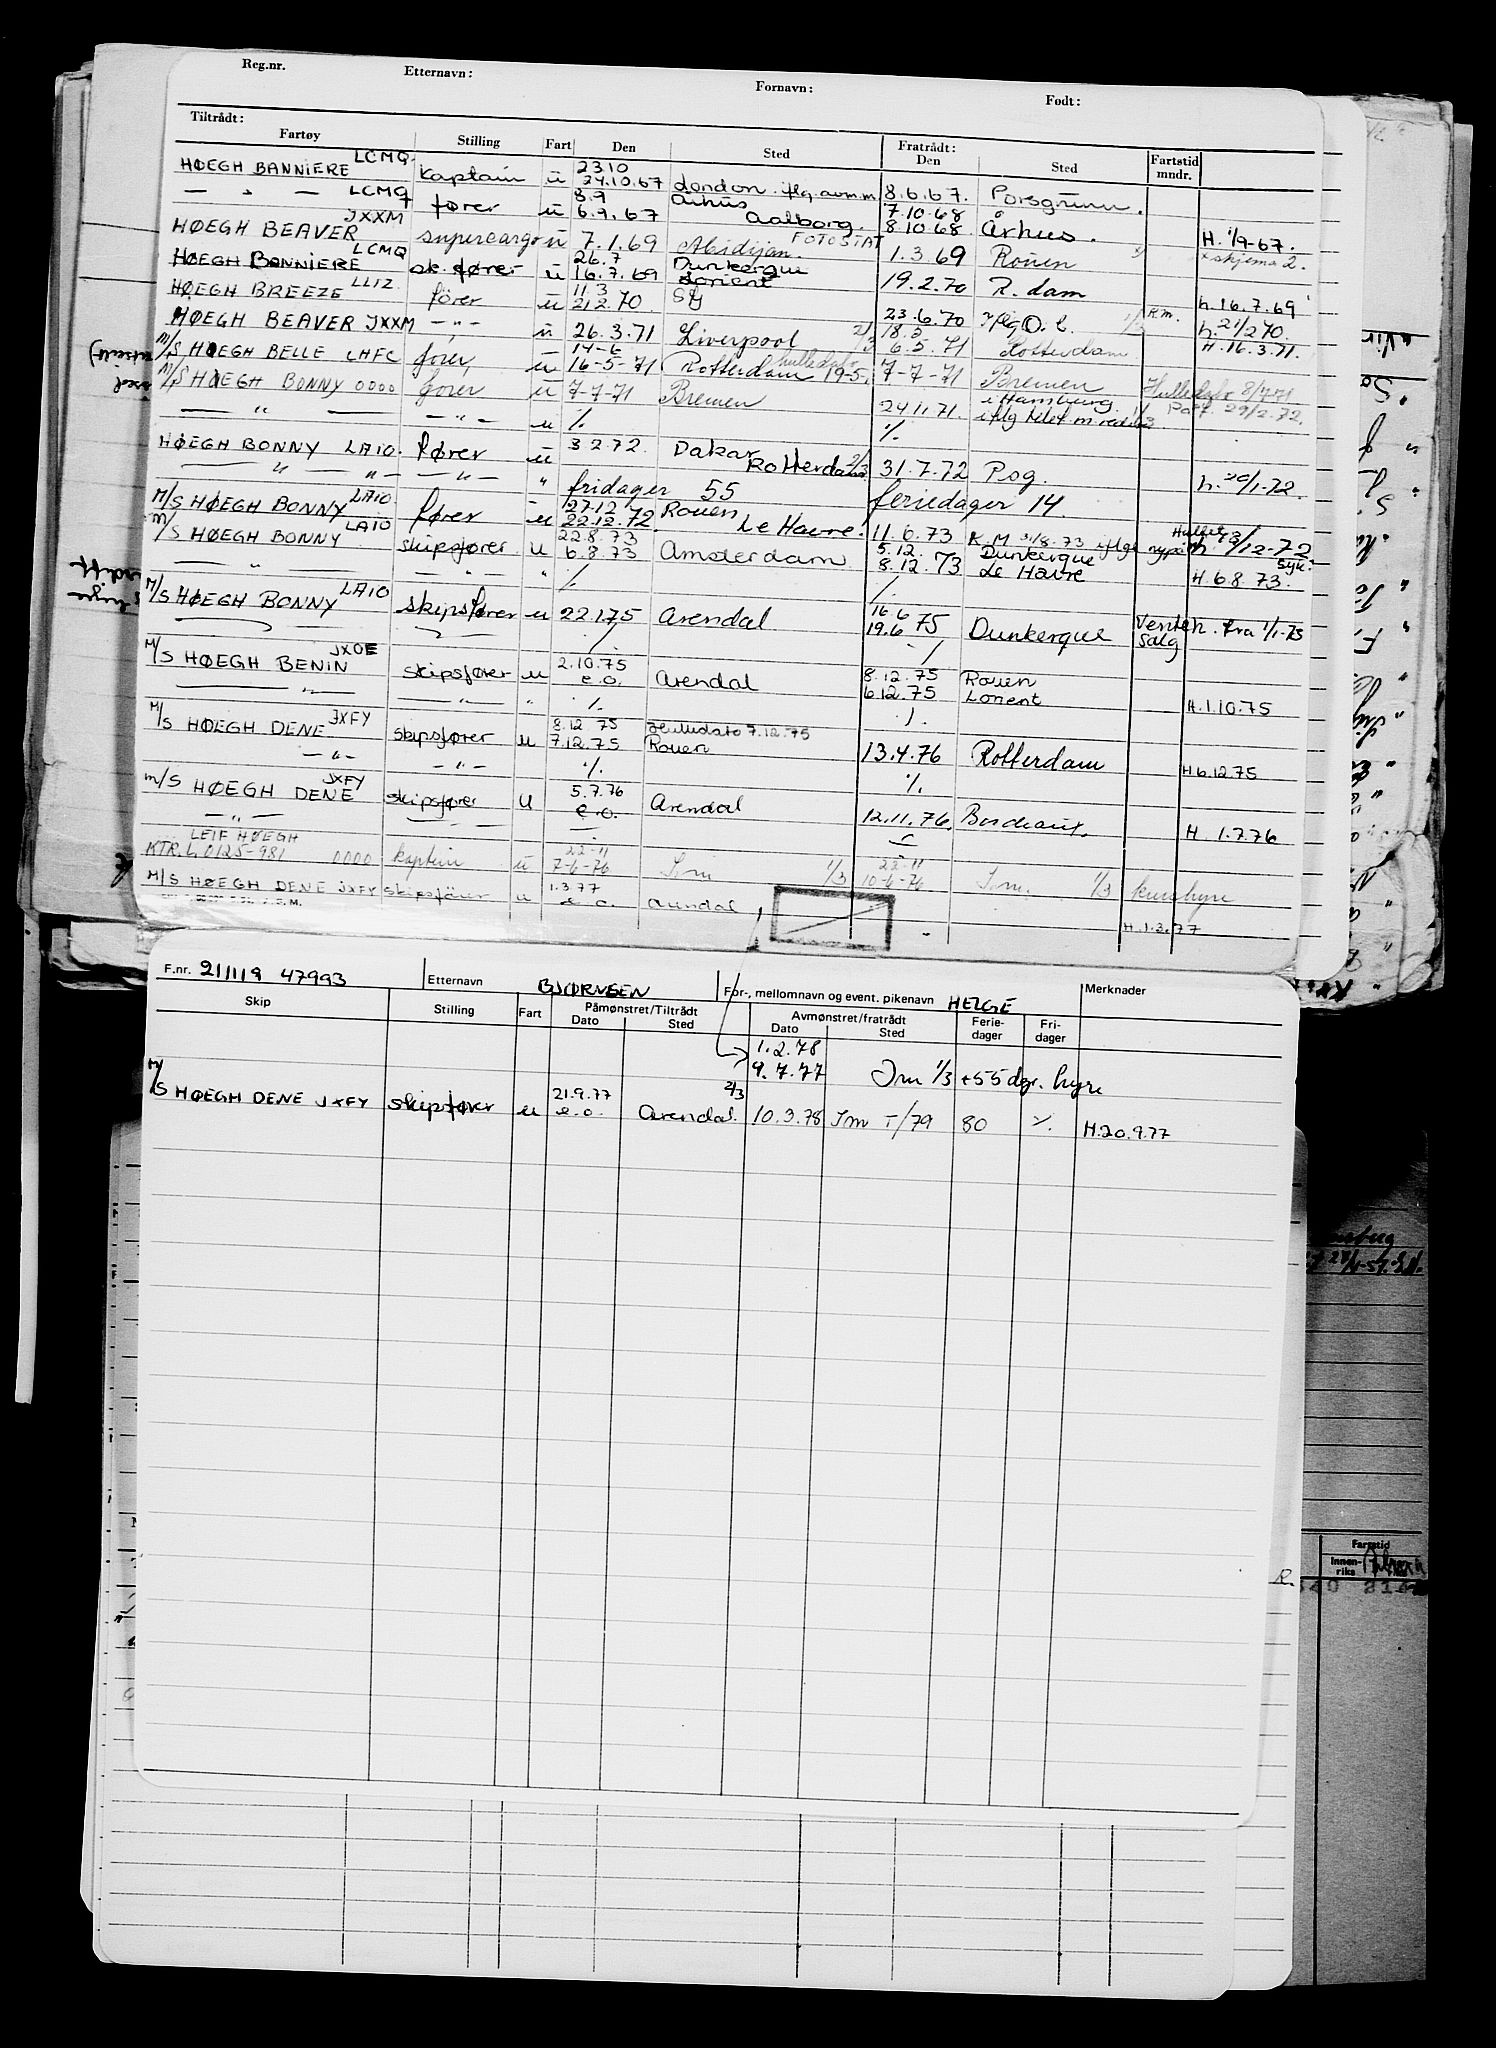 Reg.nr. Etternavn: Fornavn: Født:
Tiltrådt: Fratrådt:
Fartøy Stilling Fart Den Sted Den Sted Fartstid mndr.
HØEGH BANNIERE LCMQ. Kaptain u 23.10 24.10.67 London. iflg. avm.m 8.6.67. Porsgrunn.
— " — LCMQ fører u 8.9 6.9.67 Århus Aalborg. 7.10.68 8.10.68 Århus. H. 1/9-67.
HØEGH BEAVER JXXM supercargo u 7.1.69 Abidjan. FOTOSTAT 1.3.69 Rouen x skjema 2.
HØEGH BANNIERE LCMQ sk. fører u 26.7 16.7.69 Dunkerque Lorient 19.2.70 R.dam h. 16.7.69
HØEGH BREEZE LLIZ fører u 11.3 21.2.70 23.6.70 iflg O.L. 1/3 R.m. h. 21/2 70.
HØEGH BEAVER JXXM — " — u 26.3.71 Liverpool 2/3 18.5 6.5.71 Rotterdam H. 16.3.71.
M/S HØEGH BELLE LHFC fører, u 14-6 16-5-71 Rotterdam hulledato 19-5. 7-7-71 Bremen Hulledato 8/7 71
M/S HØEGH BONNY 0000 fører u 7-7-71 Bremen 24.11.71. i Hamburg. iflg telef. m. rederi 1/3 Port. 29/2.72.
— " — — " — u ./. ./.
HØEGH BONNY LA10. fører u 3 2 72. Dakar Rotterdam 2/3 31.7.72 Pog. h. 20/1-72.
— " — " — — " — " fridager 55 feriedager 14.
M/S HØEGH BONNY LA10. fører u 27.12 22.12.72. Rouen Le Havre. 11.6.73 K.M 31/8.73 iflge nypåm h. 13/12-72
M/S HØEGH BONNY LA10 skipsfører u 22.8.73 6.8.73 Amsterdam 5.12. 8.12.73 Dunkerque Le Havre Syk. H. 6.8.73.
— " — — " — " ./. ./.
M/S HØEGH BONNY LA10 skipsfører u 22.1.75 Arendal 16.6 19.6 75 Dunkerque Venteh. fra 1/1-75 Salg
./. ./.
M/S HØEGH BENIN JXOE skipsfører u 2.10.75 e.o. Arendal 8.12.75 6.12.75 Rouen Lorient H. 1.10.75
— " — — " — " ./. ./.
M/S HØEGH DENE JXFY skipsfører u 8.12.75 7.12.75 Hulledato 7.12.75 Rouen 13.4.76 Rotterdam H 6.12.75
— " — — " — ./. ./.
M/S HØEGH DENE JXFY skipsfører u 5.7.76 e.o. Arendal 12.11.76. Bordeaux. H. 1.7.76
— " —
LEIF HØEGH
KTR. L. 0125-981 0000 kaptein u 22-11 7-6-76 Ism 1/3 22-11 10-6-76 Ism. 1/3 kunhyre
M/S HØEGH DENE JXFY skipsfører u 1.3.77 e.o. Arendal H. 1.3.77
F.nr. 211119 47993 Etternavn BJØRNSEN For-, mellomnavn og event. pikenavn HELGE Merknader
Skip Stilling Fart Påmønstret/Tiltrådt Avmønstret/fratrådt Ferie- Fri-
Dato Sted Dato Sted dager dager
1.2.78
9.7.77 Ism 1/3 +55 dgr. hyre
M/S HØEGH DENE JXFY skipsfører u 21.9.77 e.o. Arendal. 2/3 10.3.78 Ism T/79 80 ./. H. 20.9.77
Fartstid
Innen-
riks
R.